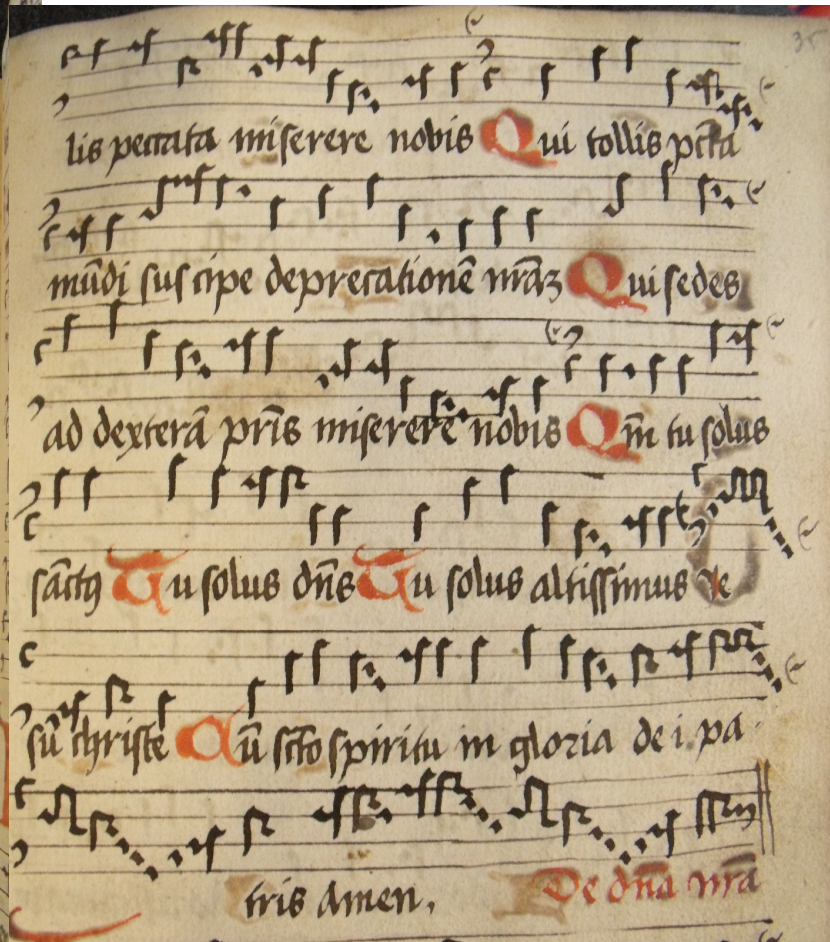 35
lis peccata miserere nobis Qui tollis pctā
mūdi suscipe deprecationē nrāȝ Qui sedes
ad dexterā pris̄ miserere nobis Qm̄ tu solus
sāctꝰ Tu solus dn̄s Tu solus altissimus Je
su christe Cū scto spiritu in gloria dei. pa
tris Amen.
De dn̄a nr̄a